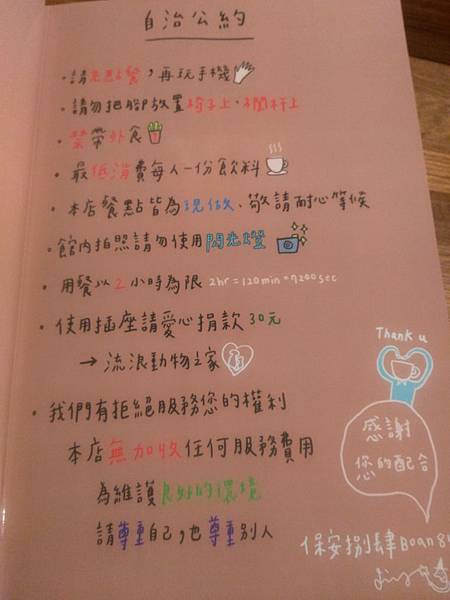 自治公約
・請先點餐，再玩手機
・請勿把腳放置椅子上、欄杆上
・禁帶外食
・最低消費每人一份飲料
・本店餐點皆為現做、敬請耐心等候
・館內拍照請勿使用閃光燈
・用餐以2小時為限 2hr=120min=7200sec
・使用插座請愛心捐款30元
→流浪動物之家
・我們有拒絕服務您的權利
本店無加收任何服務費用
為維護良好的環境
請尊重自己,也尊重別人
Thank u
感謝
您的配合
保安捌肆Boan84